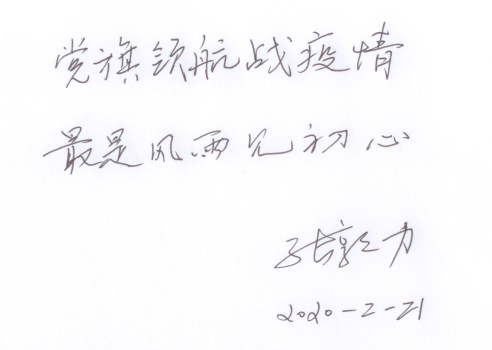 党旗领航战疫情
最是风雨见初心
张郭力
2020-2-21